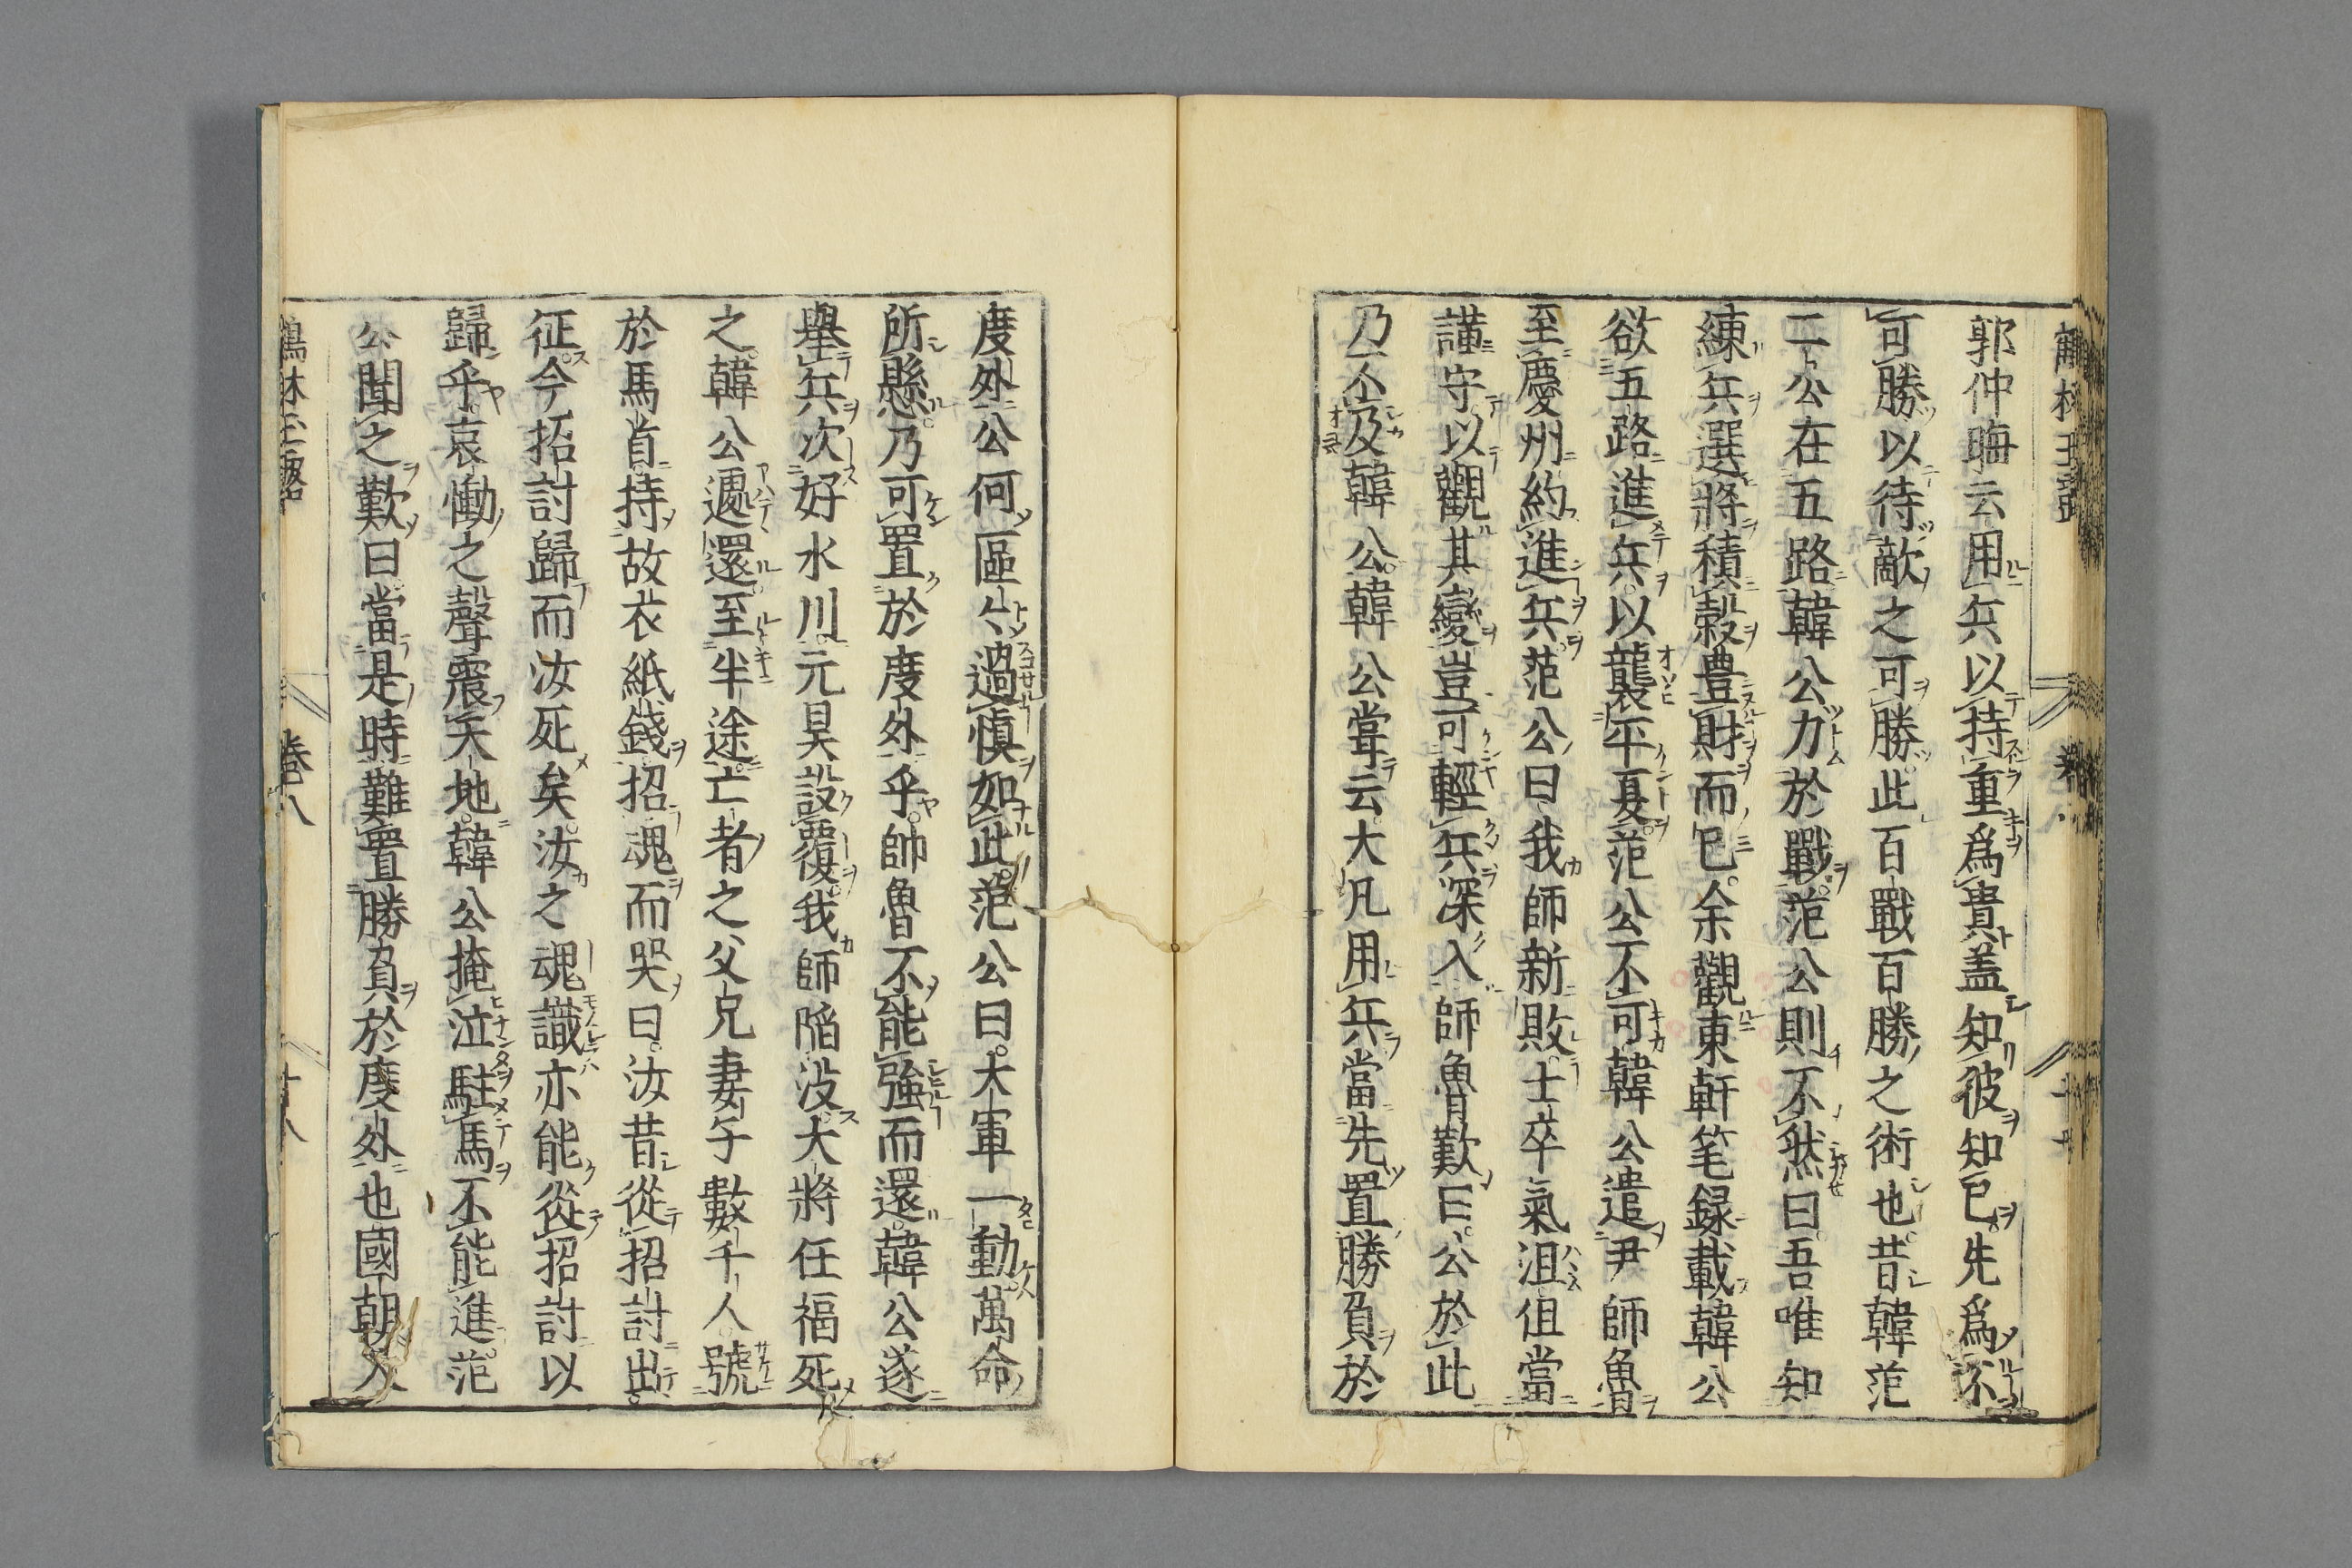 郭仲晦云用兵以持重爲貴盖知彼知已先爲不
可勝以待敵之可勝此百戰百勝之術也昔韓范
二公在五路韓公力於戰范公則不然曰吾唯知
練兵選將積穀豊財而已余觀東軒笔録載韓公
欲五路進兵以襲平夏范公不可韓公遣尹師魯
至慶州約進兵范公曰我師新敗士卒氣沮但當
謹守以觀其變豈可輕兵深入師魯歎曰公於此
乃不及韓公韓公嘗云大凡用兵當先置勝負於
度外公何區〻過慎如此范公曰大軍一動萬命
所懸乃可置於度外乎師魯不能強而還韓公遂
舉兵次好水川元昊設覆我師陥没大將任福死
之韓公遽還至半途亡者之父兄妻子數千人號
於馬首持故衣紙錢招魂而哭曰汝昔從招討出
征今招討歸而汝死矣汝之魂識亦能從招討以
歸乎哀慟之聲震天地韓公掩泣駐馬不能進范
公聞之歎曰當是時難置勝負於度外也國朝人
鶴林玉露 卷八 十八